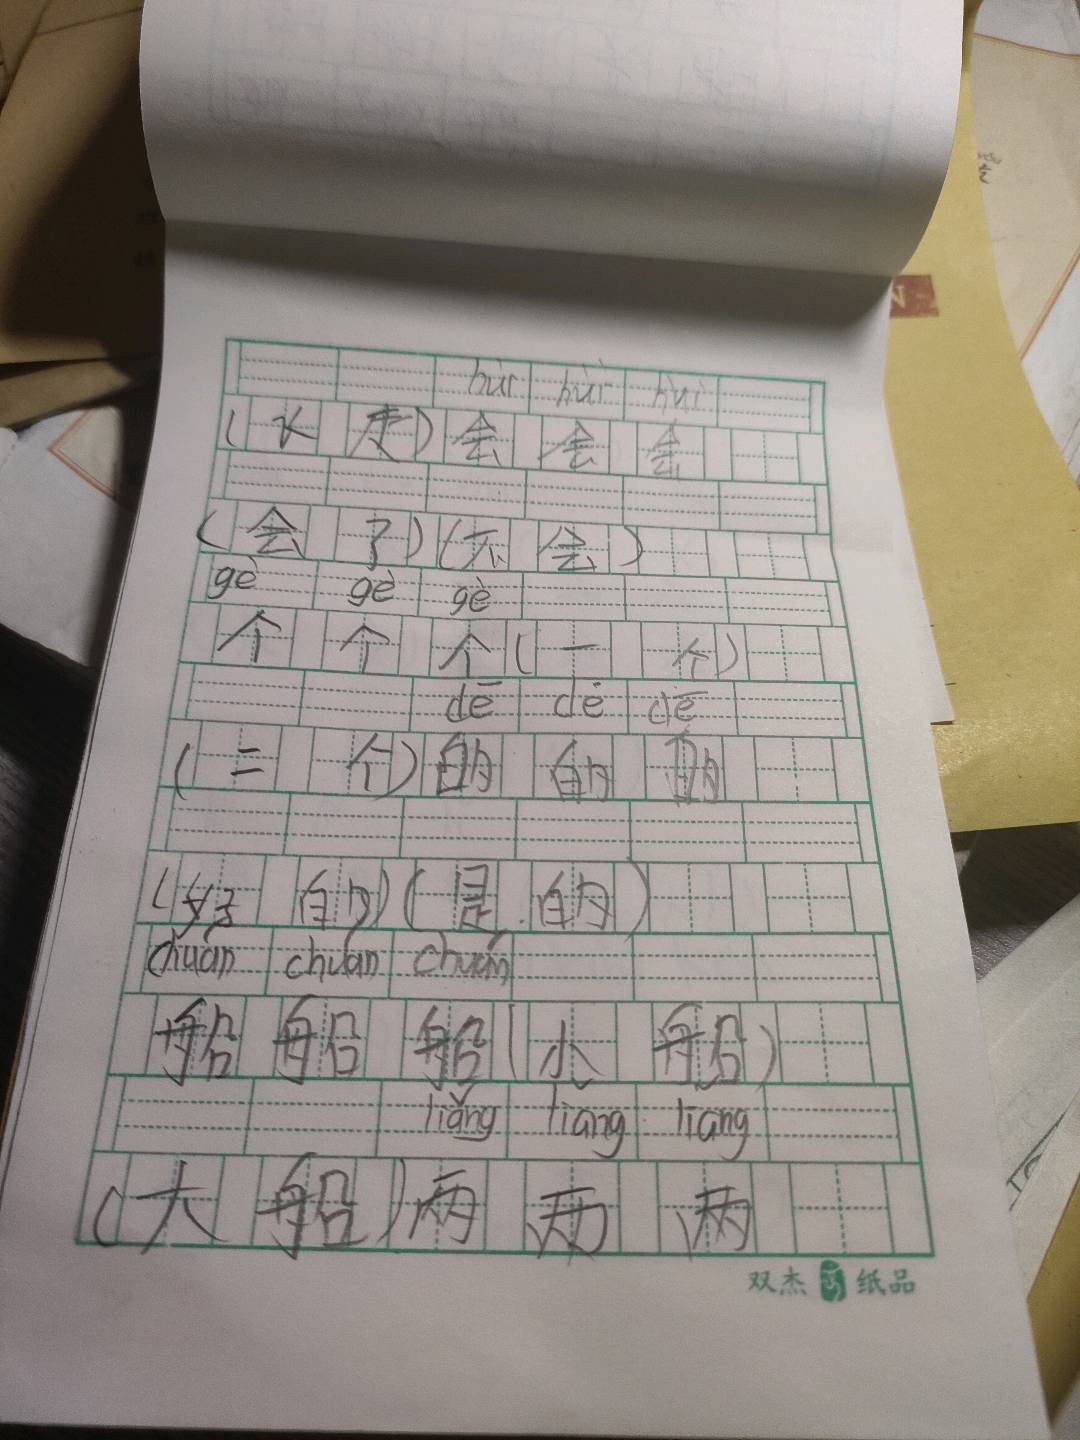 huì huì huì
(水 走) 会 会 会
(会 了) (不 会)
gè gè gè
个 个 个 (一 个)
dē dē dē
(二 个) 的 的 的
(好 的) (是 的)
chuán chuán chuán
船 船 船 (小 船)
liǎng liang liang
(大 船) 两 两 两
双杰 纸品